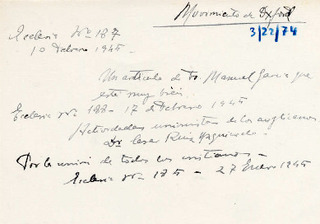 Movimiento de Oxford
3/22/74
Ecclesia Nº 187
10 Febrero 1945
Un artículo de D. Manuel que
está muy bien.
Ecclesia nº 188 - 17 Febrero 1945
Actividades unionistas de los anglicanos
Dr Cesar Ruiz Izquierdo
Por la unión de todos los cristianos -
Ecclesia nº - 27 Enero 1945